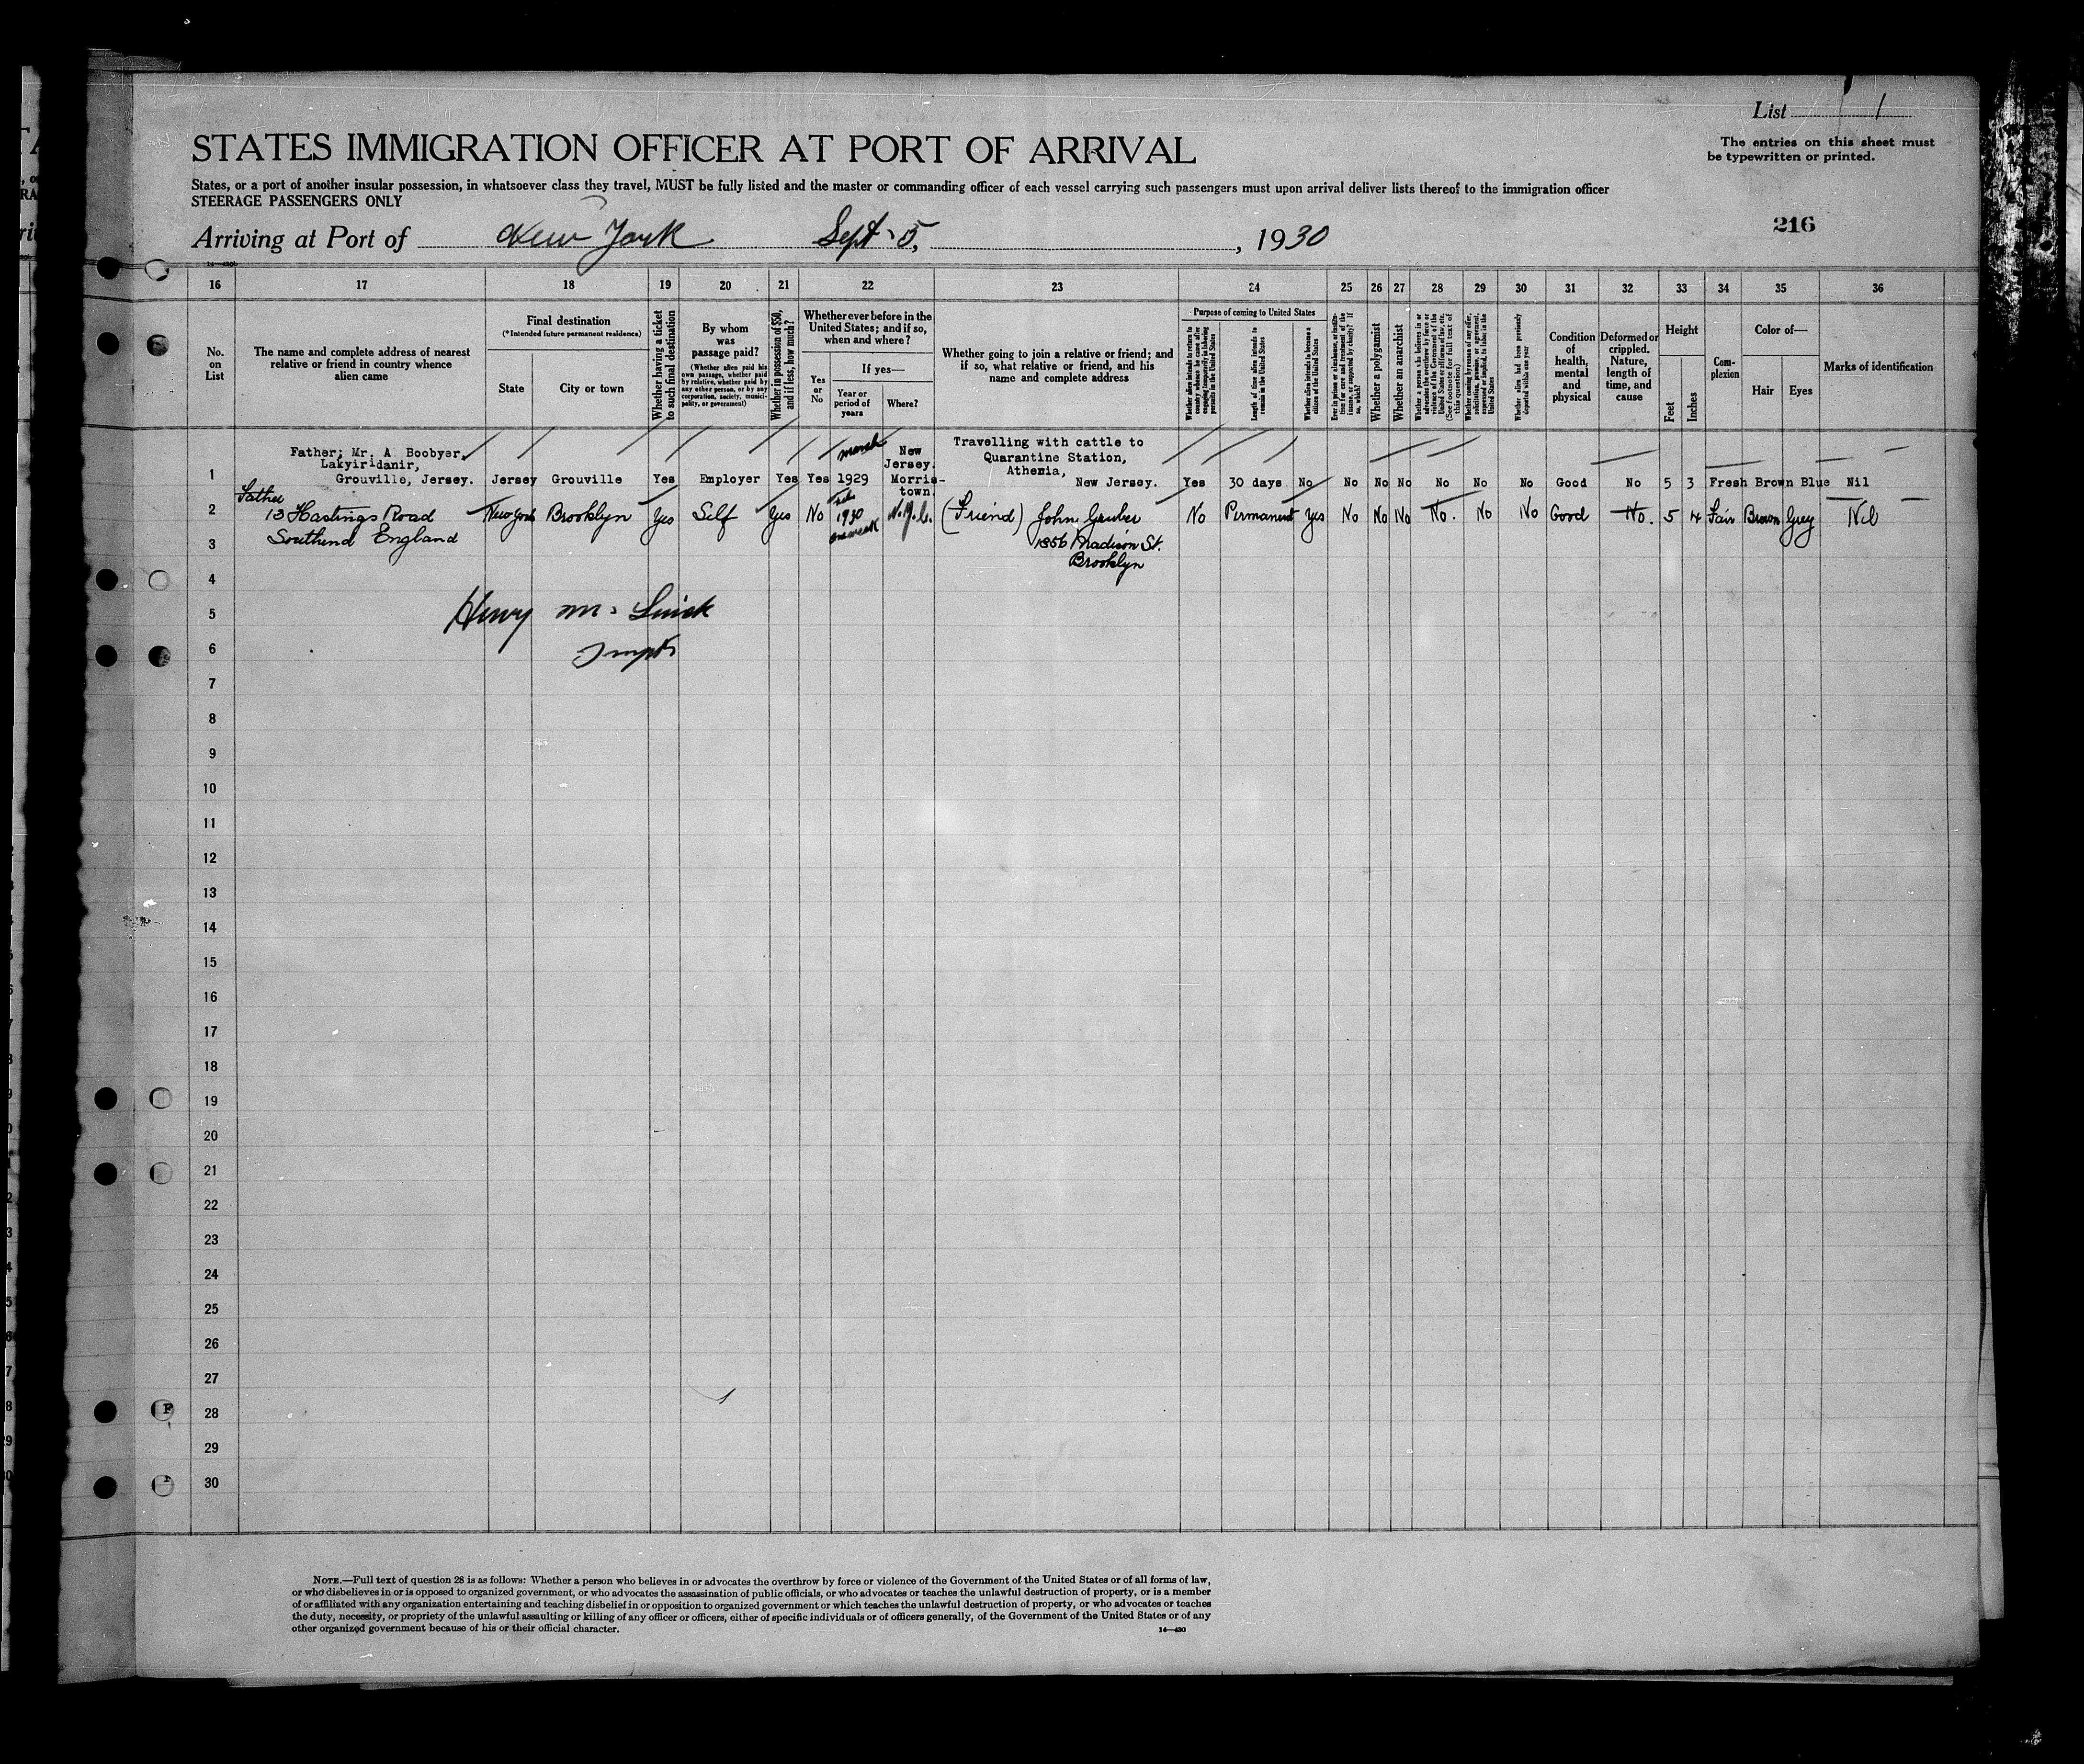 List 1
The entries on this sheet must
be typewritten or printed.
STATES IMMIGRATION OFFICER AT PORT OF ARRIVAL
States, or a port of another insular possession, in whatsoever class they travel, MUST be fully listed and the master or commanding officer of each vessel carrying such passengers must upon arrival deliver lists thereof to the immigration officer
STEERAGE PASSENGERS ONLY
216
Arriving at Port of New York Sept. 5, , 1930
16 17 18 19 20 21 22 23 24 25 26 27 28 29 30 31 32 33 34 35 36
No.
on
List
The name and complete address of nearest
relative or friend in country whence
alien came
Final destination
(*Intended future permanent residence)
State
City or town
Whether having a ticket
to such final destination
By whom
was
passage paid?
(Whether alien paid his
own passage, whether paid
by relative, whether paid by
any other person, or by any
corporation, society, munici-
pality, or government)
Whether in possession of $50,
and if less, how much?
Whether ever before in the
United States; and if so,
when and where?
Yes
or
No
If yes—
Year or
period of
years
Where?
Whether going to join a relative or friend; and
if so, what relative or friend, and his
name and complete address
Purpose of coming to United States
Whether alien intends to return to
country whence he came after
engaging temporarily in laboring
pursuits in the United States
Length of time alien intends to
remain in the United States
Whether alien intends to become a
citizen of the United States
Ever in prison or almshouse, or institu-
tion for care and treatment of the
insane, or supported by charity? If
so, which?
Whether a polygamist
Whether an anarchist
(See footnote for full text of
this question)
Whether coming by reason of any offer,
solicitation, promise, or agreement,
expressed or implied, to labor in the
United States
Whether alien had been previously
deported within one year
Condition
of
health,
mental
and
physical
Deformed or
crippled.
Nature,
length of
time, and
cause
Height
Feet
Inches
Com-
plexion
Color of—
Hair
Eyes
Marks of identification
Father; Mr. A Boobyer,
Lakyiridanir,
Grouville, Jersey.
1 Jersey Grouville Yes Employer Yes Yes March 1929
New
Jersey.
Morris-
town.
Travelling with cattle to
Quarantine Station,
Athenia,
New Jersey.
Yes 30 days No No No No No No No Good No 5 3 Fresh Brown Blue Nil
Father
2 13 Hastings Road New York Brooklyn Yes Self Yes No 1930 N.Y.C. (Friend) John Gruber No Permanent Yes No No No No. No No Good No. 5 4 Fair Brown Grey Nil
one week
3 Southend England
1856 Madison St.
Brooklyn
4
5 Henry M.
6
7
8
9
10
11
12
13
14
15
16
17
18
19
20
21
22
23
24
25
26
27
28
29
30
NOTE.—Full text of question 28 is as follows: Whether a person who believes in or advocates the overthrow by force or violence of the Government of the United States or of all forms of law,
or who disbelieves in or is opposed to organized government, or who advocates the assassination of public officials, or who advocates or teaches the unlawful destruction of property, or is a member
of or affiliated with any organization entertaining and teaching disbelief in or opposition to organized government or which teaches the unlawful destruction of property, or who advocates or teaches
the duty, necessity, or propriety of the unlawful assaulting or killing of any officer or officers, either of specific individuals or of officers generally, of the Government of the United States or of any
other organized government because of his or their official character.
14—430